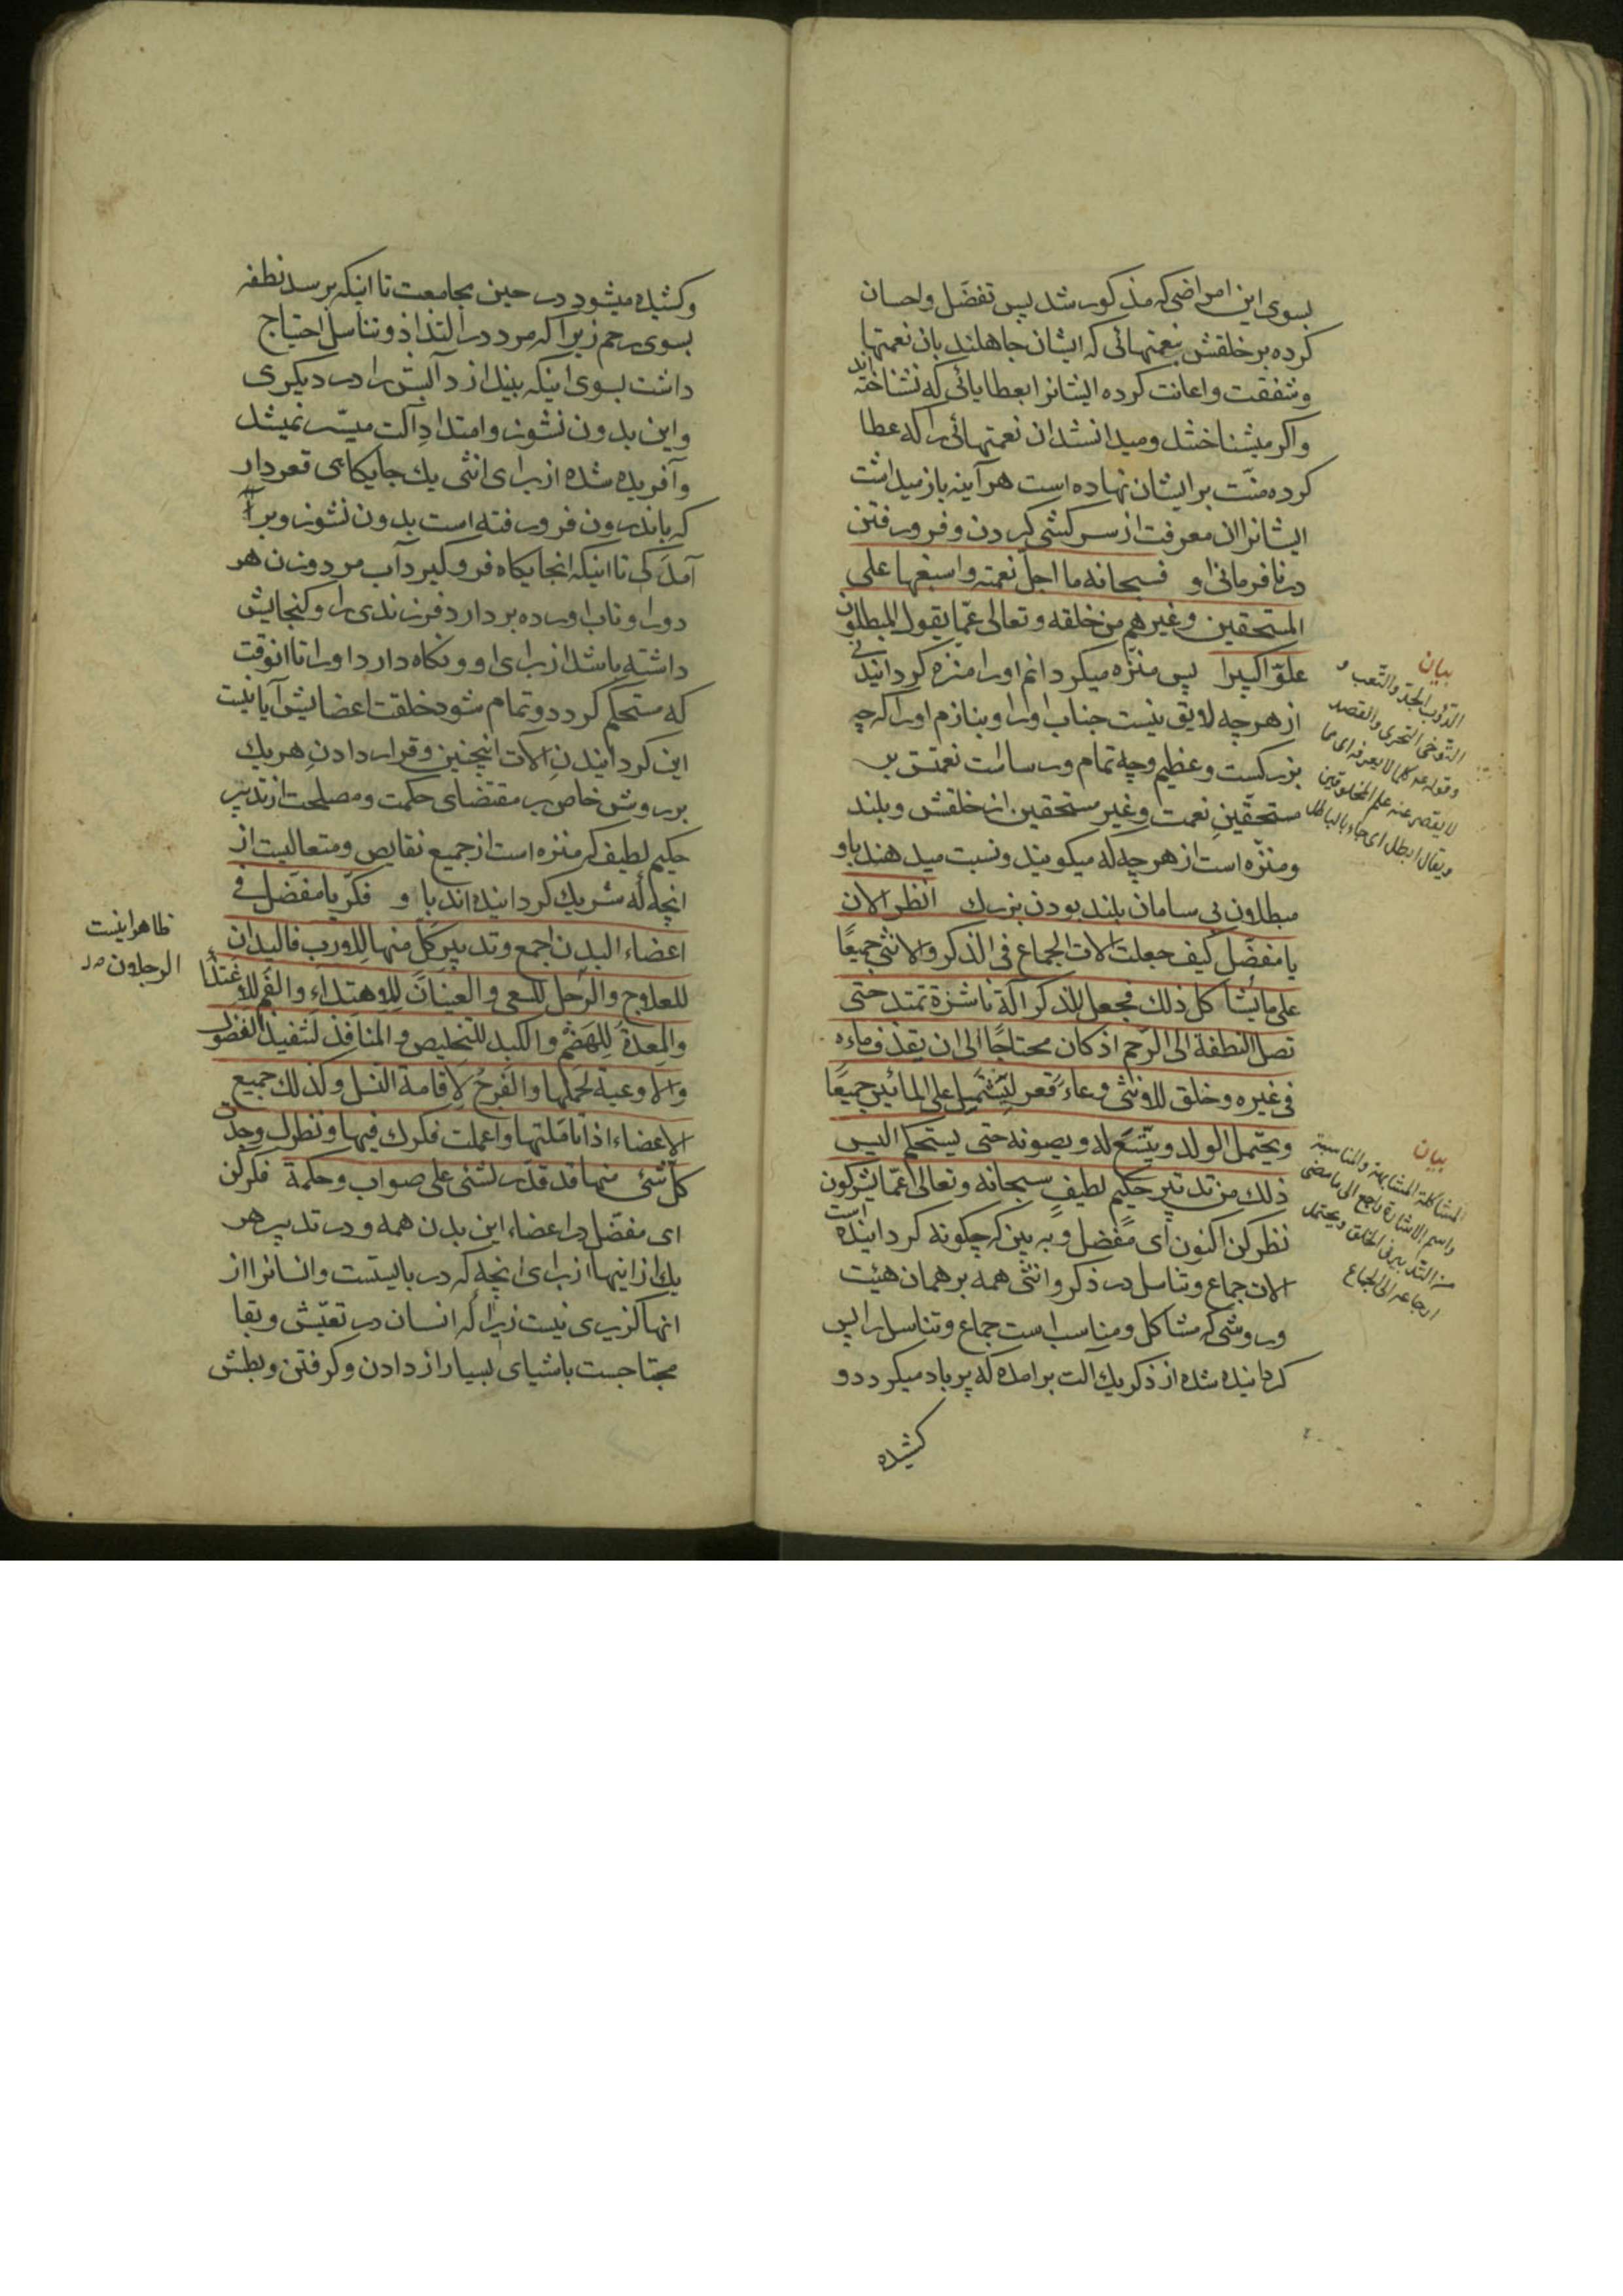 بسوی این امراضی که مذکور شد پس تفضّل واحسان
کرده بر خلقش بنعمتهائی که ایشان جاهلند بان نعمتها
وشفقت واعانت کرده ایشانرا بعطایائی که نشناخته اند
واکر میشناختند ومیدانستند ان نعمتهائی را که عطا
کرده منّت بر ایشان نهاده است هر آینه باز میداشت
ایشانرا ان معرفت از سرکشی کردن و فرو رفتن
در نافرمانی او فسبحانه ما اجلّ نعمته واسبغها علی
المستحقین وغیرهم من خلقه وتعالی عمّا یقول المبطلون
علوّا کبیرا پس منزّه میکردانم اورا منزه کردانیدنی
از هرچه لایق نیست جناب اورا و بنازم اورا که چه
بزرکست وعظیم وچه تمام ورساست نعمتش بر
مستحقّین نعمت وغیر مستحقین از خلقش وبلند
ومنزّه است از هرچه که میکویند ونسبت میدهند باو
مبطلون بی سامان بلند بودن بزرك انظر الان
یا مفضّل کیف جعلت الات الجماع فی الذکر والانثی جمیعًا
علی ما یشا کل ذلك فجعل للذکر الة ناشزة تمتد حتی
تصل النطفة الی الرّحم اذ کان محتاجًا الی ان یقذف ماءه
فی غیره وخلق للانثی وعاءً قعر لیشتمل علی المائین جمیعًا
ویحتمل الولد ویتّسع له ویصونه حتی یستحکم الیس
ذلك من تدبیر حکیم لطیف سبحانه وتعالی عمّا یشرکون
نظر کن اکنون ای مفضل و به بین که چکونه کردانیده است
الات جماع وتناسل در ذکر وانثی همه بر همان هیئت
وروشی که مشاکل ومناسب است جماع وتناسل را پس
کردانیده شده از ذکر یك آلت برامده که پر باد میکردد و
کشیده
بیان
الدّؤب الجدّ والتّعب و
التّوخی التحری والقصد
وقوله ع کلما لا یعرفه ای مما
لا یقصر عنه علم المخلوقین
ویقال ابطل ای جاء بالباطل
بیان
المشاکلة المشابهة والمناسبة
واسم الاشارة راجع الی ما مضی
من التّدبیر فی الخلق ویحتمل
ارجاعه الی الجماع
وکشیده میشود در حین مجامعت تا اینکه برسد نطفه
بسوی رحم زیرا که مرد در التذاذ وتناسل احتیاج
داشت بسوی اینکه بیندازد آبش را در دیکری
واین بدون نشوز وامتداد آلت میسّر نمیشد
وآفریده شده از برای انثی یك جایکاهی قعردار
که باندرون فرو رفته است بدون نشوز وبر
آمدکی تا اینکه انجایکاه فرو کیرد آب مرد وزن هر
دورا وتاب اورده بردارد فرزندی را وکنجایش
داشته باشد از برای او و نکاه دارد اورا تا انوقت
که مستحکم کردد وتمام شود خلقت اعضایش آیا نیست
این کردانیدن آلات اینچنین وقرار دادن هریك
بر روش خاص بر مقتضای حکمت ومصلحت از تدبیر
حکیم لطیف که منزه است از جمیع نقایص ومتعالیست از
انچه که شریك کردانیده اند با و فکّر یا مفضّل فی
اعضاء البدن اجمع وتدبیر کل منها للاورب فالیدان
للعلاج والرّجل للسعی والعینان للاهتداء والفم للاغتذا
والمعدة للهضم والکبد للتخلیص والمنافذ لتنفیذ الفضول
والاوعیة لحملها والفرج لاقامة النسل وکذلك جمیع
الاعضاء اذا تاملتها واعملت فکرك فیها ونظرك وجدت
کلّ شئ منها قد قدّر لشئ علی صواب وحکمة فکر کن
ای مفضّل در اعضاء این بدن همه ودر تدبیر هر
یك از اینها از برای انچه که در بایستست وانسانرا از
انها کزیری نیست زیرا که انسان در تعیّش وبقا
محتاجست باشیای بسیار از دادن وکرفتن وبطش
ظاهرا نیست
الرجلان